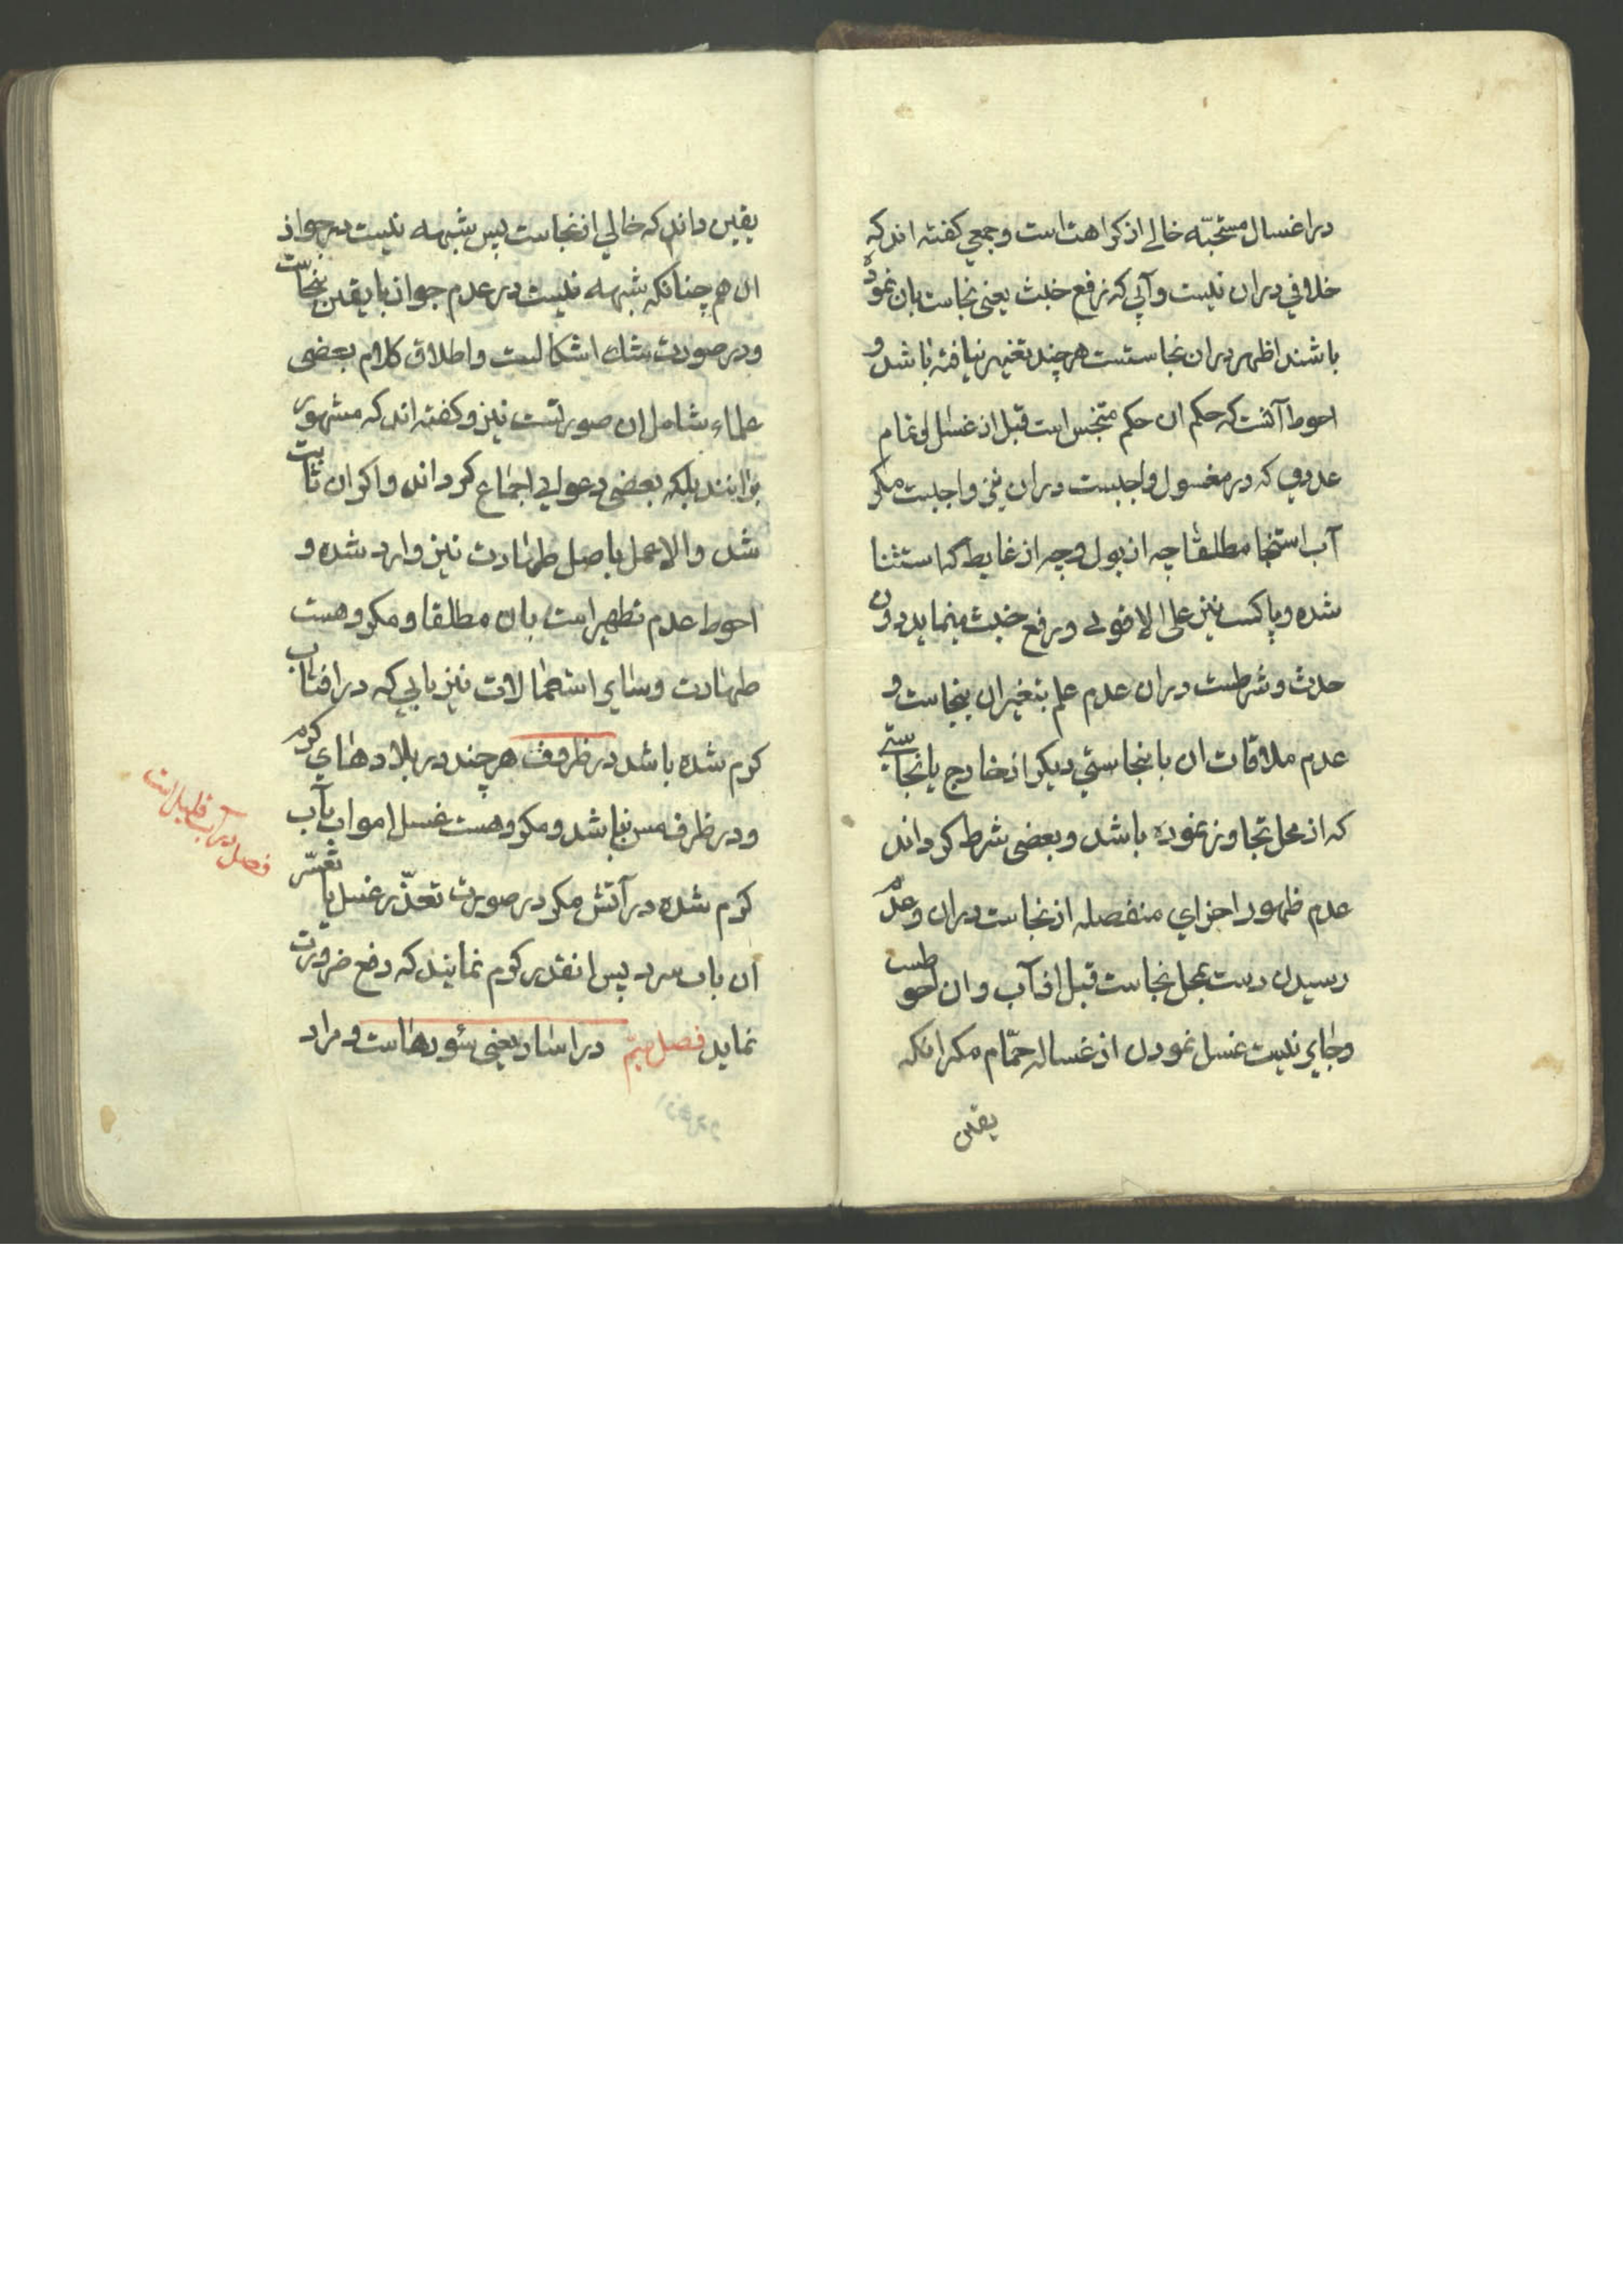 در اغسال مستحبّه خالی از کراهت است و جمعی کفته اند که
خلافی در ان نیست و آبی که رفع خبث یعنی نجاست بان نموده
باشند اظهر در ان نجاستست هر چند تغییر نیافته باشد و
احوط آنست که حکم ان حکم متنجس است قبل از غسل و تمام
عددی که در مغسول واجبست در ان نیز واجبست مکر
آب استنجا مطلقا چه از بول و چه از غایط که استثنا
شده و پاکست نیز علی الاقوی و رفع خبث مینماید دون
حدث و شرطست در ان عدم علم بتغیر ان بنجاست و
عدم ملاقات ان با نجاستی دیکر از خارج یا نجاستی
که از محل تجاوز نموده باشد و بعضی شرط کرداند
عدم ظهور اجزای منفصله از نجاست در ان و عدم
رسیدن دست بمحل نجاست قبل از آب و ان احوطست
و جایز نیست غسل نمودن از غساله حمّام مکر انکه
یقین
یقین داند که خالی از نجاست پس شبهه نیست در جواز
ان هم چنانکه شبهه نیست در عدم جواز با یقین بنجاست
و در صورت شک اشکالست و اطلاق کلام بعضی
علماء شامل ان صورتست نیز و کفته اند که مشهور
بر انند بلکه بعضی دعوای اجماع کرداند و اکر ان ثابت
شد والا عمل باصل طهارت نیز وارد شده و
احوط عدم تطهیر است بان مطلقا و مکروهست
طهارت و سایر استعمالات نیز بابی که در افتاب
کرم شده باشد در ظروف هر چند در بلادهای کرم
و در ظرف مس نباشد و مکروهست غسل اموات بآب
کرم شده در آتش مکر در صورت تعذّر غسل یا تعسّر
ان باب سرد پس انقدر کرم نمایند که دفع ضرورت
نماید فصل در اسار یعنی سؤرهاست و مراد
فصل در آب قلیل است